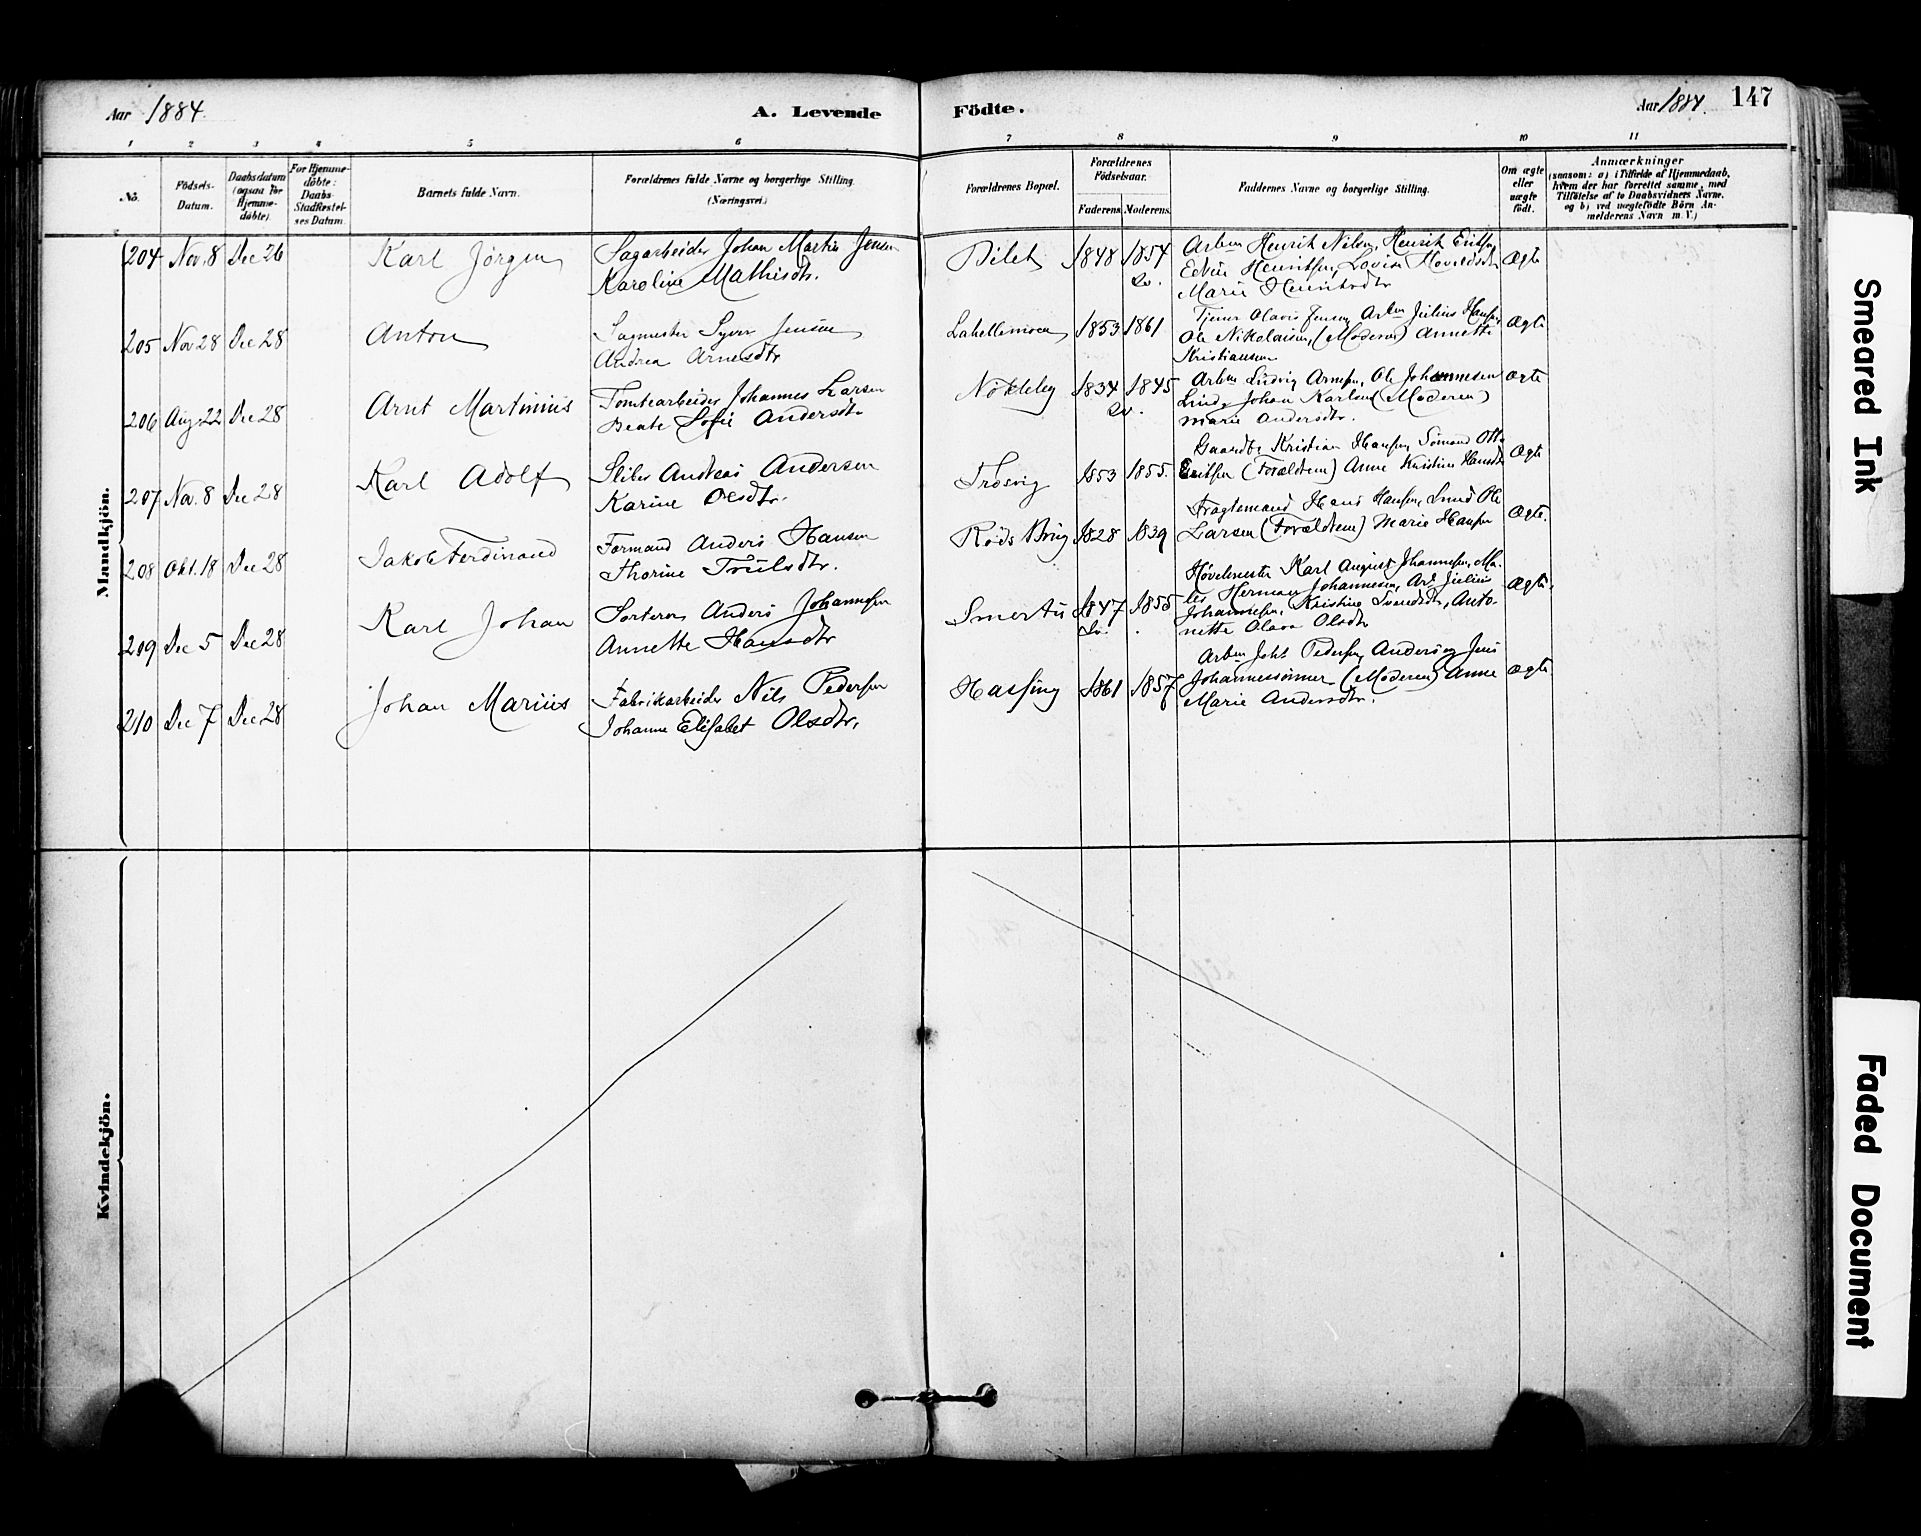 Aar 1884. A. Levende Födte. Aar 1884. 147
1 2 3 4 5 6 7 8 9 10 11
No. Födsels-Datum. Daabsdatum (ogsaa for Hjemme-döbte). For Hjemme-döbte: Daabs-Stadfæstel-ses Datum. Barnets fulde Navn. Forældrenes fulde Navne og borgerlige Stilling. (Næringsvei.) Forældrenes Bopæl. Forældrenes Födselsaar. Faderens. Moderens. Faddernes Navne og borgerlige Stilling. Om ægte eller uægte födt. Anmærkninger (saasom: a) i Tilfælde af Hjemmedaab, hvem der har forrettet samme, med Tilföielse af to Daabsvidners Navne, og b) ved uægtefödte Börn An-melderens Navn m. V.)
Mandkjön.
204 Nov. 8 Dec 26 Karl Jørgen Sagarbeider Johan Martin Jensen
Karoline Mathisdtr.
Pilet 1848 1854
Sv.
Arbm Henrik Nilsen, Henrik Eriksen
Edvin Henriksen, Lovise
Marie Henriksdtr
Ægte
205 Nov 28 Dec 28 Anton Sagmester Syver Jensen
Andrea Arnesdtr
Lahellemoen 1853 1861
Tjener Olavis Jensen Arbm Julius Hansen,
Ole Nikolaisen, (Moderen) Annette
Kristiansen
Ægte
206 Aug. 22 Dec 28 Arnt Martinius Tomtearbeider Johannes Larsen
Beate Sofie Andersdtr
Nökleby 1834 1845
Sv.
Arbm Ludvig Arnesen, Ole Johannesen
Lund, Johan Karlsen (Moderen)
Marie Andersdtr.
Ægte
207 Nov. 8 Dec 28 Karl Adolf Sliber Andreas Andersen
Karine Olsdtr.
Trosvig 1853 1855.
Gaardbr Kristian Hansen, Sömand Otto
Eriksen (Forældrene) Anne Kristine Hansdtr
Ægte
208 Okt. 18 Dec 28 Jakob Ferdinand Formand Anders Hansen
Thorine Trulsdtr.
Røds Brug 1828 1839
Fragtemand Hans Hansen, Smed Ole
Larsen (Forældrene) Marie Hansen
Ægte.
209 Dec 5 Dec 28 Karl Johan Sorterer Anders Johannesen
Annette Hansdtr
Smertu 1847 1855
Sv.
Høvlemester Karl August Johannesen, Ma-
ler Herman Johannesen, Arb Julius
Johannesen, Kristine Svendsdtr, Anto-
nette Olava Olsdtr
Ægte.
210 Dec 7 Dec 28 Johan Marius Fabrikarbeider Nils Pedersen
Johanne Elisabet Olsdtr.
Hasfing 1861 1857
Arbm Joht Pedersen, Anders og Jens
Johannessönner (Moderen) Anne
Marie Andersdtr.
Ægte
Kvindekjön.
Smeared Ink
Faded Document